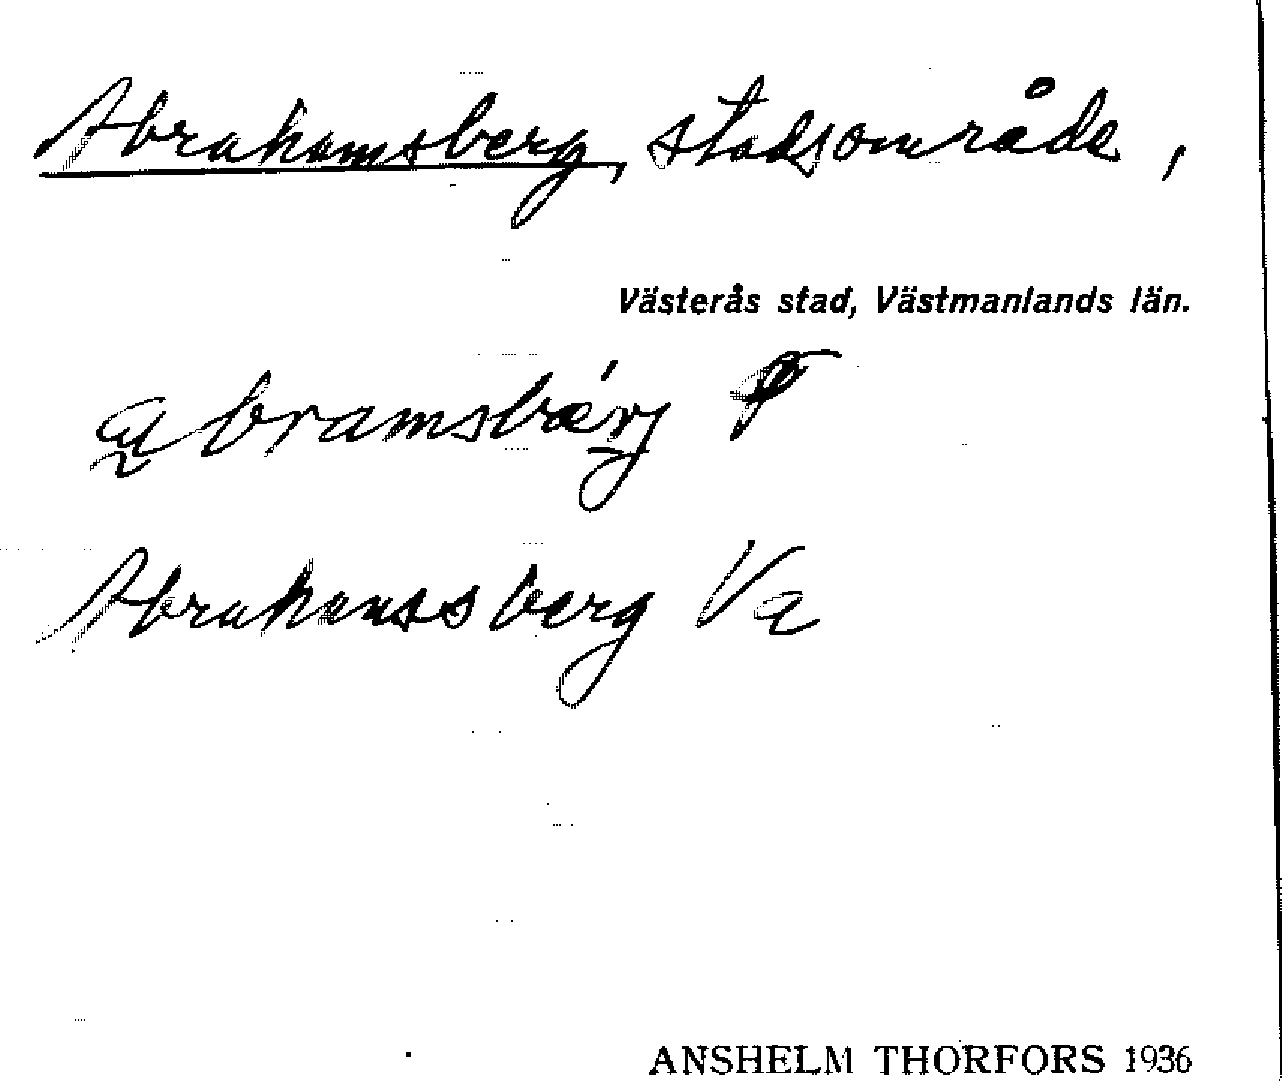 Abrahamsberg, stadsområde,
Västerås stad, Västmanlands län.
abramsbärj
Abrahamsberg Va
ANSHELM THORFORS 1936